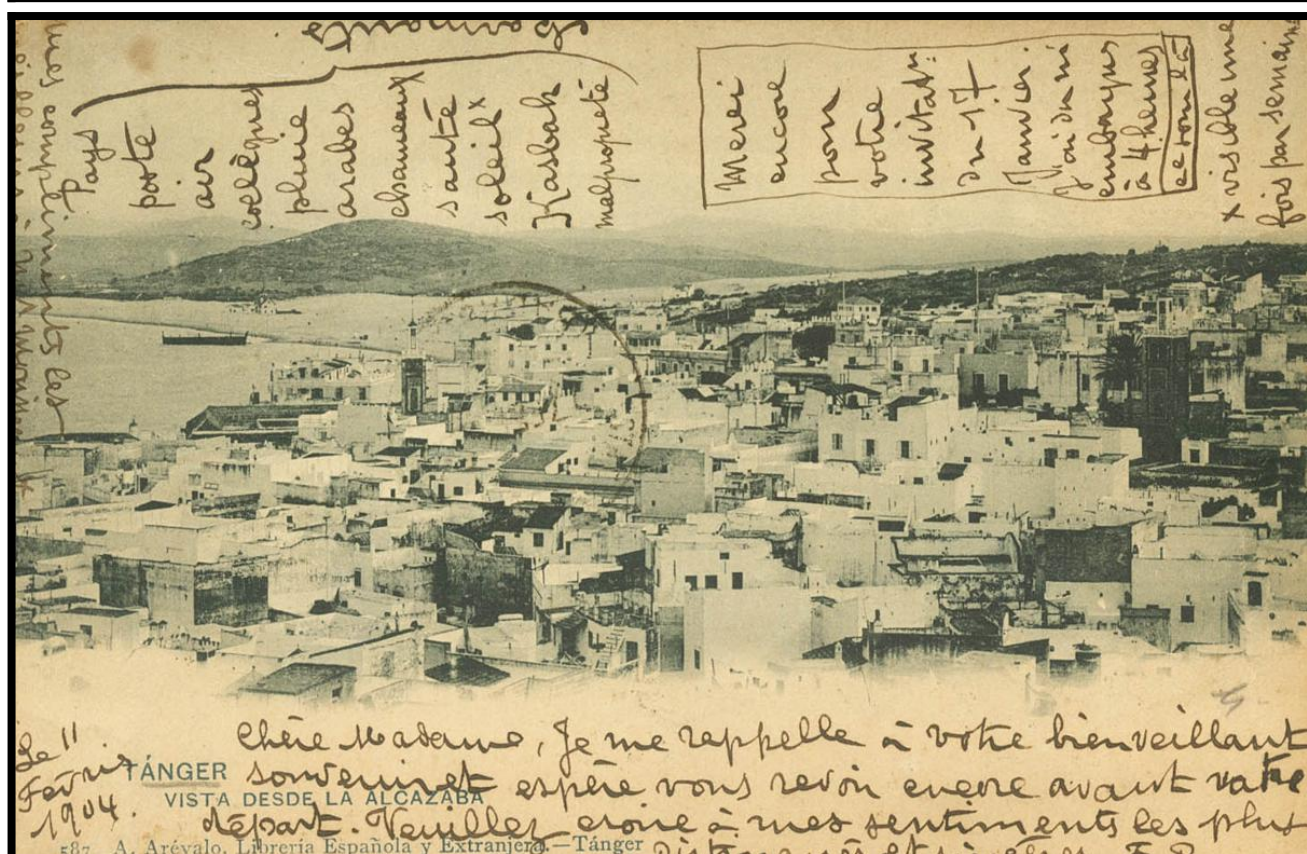 charmants
Pays
poste
air
collègues
pluie
arabes
chameaux
santé
soleil x
Kasbah
malpropreté
Merci
encore
pour
votre
invitatn:
du 17
Janvier.
J'ai dû m'
embarquer
à 4 heures
ce jour là
x visible une
fois par semaine
mes compliments les
Le 11
Février
1904.
Chère Madame, Je me rappelle à votre bienveillant
souvenir et espère vous revoir encore avant votre
départ. Veuillez croire à mes sentiments les plus
distingués et sincères.
TÁNGER
VISTA DESDE LA ALCAZABA
587 A. Arévalo. Librería Española y Extranjera.—Tánger